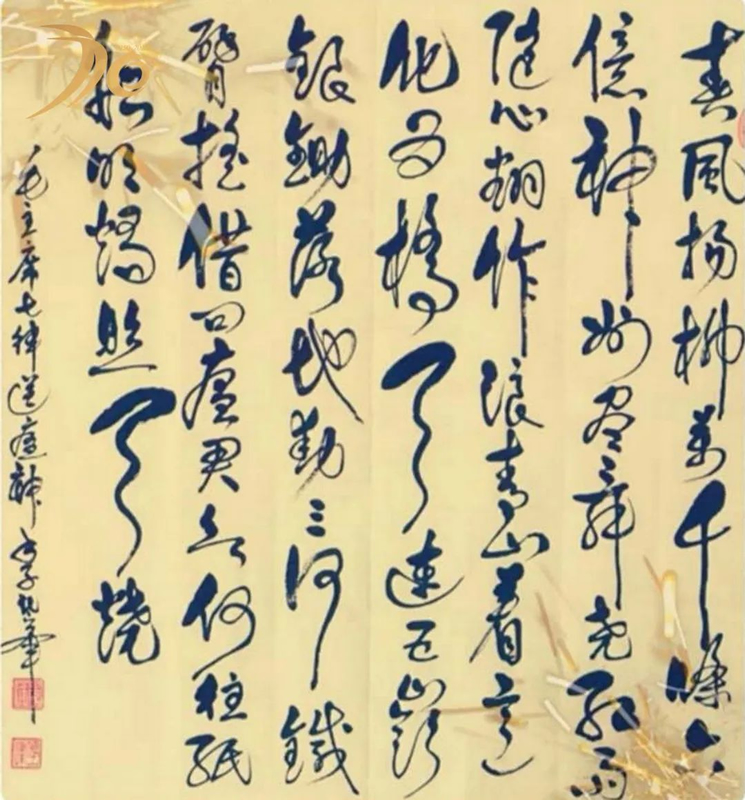 春風楊柳萬千條六
億神州盡舜堯紅雨
隨心翻作浪青山着意
化为橋天連五嶺
銀鋤落地動三河鐵
臂搖借问瘟君欲何往紙
船明燭照天燒
毛主席七律送瘟神 李